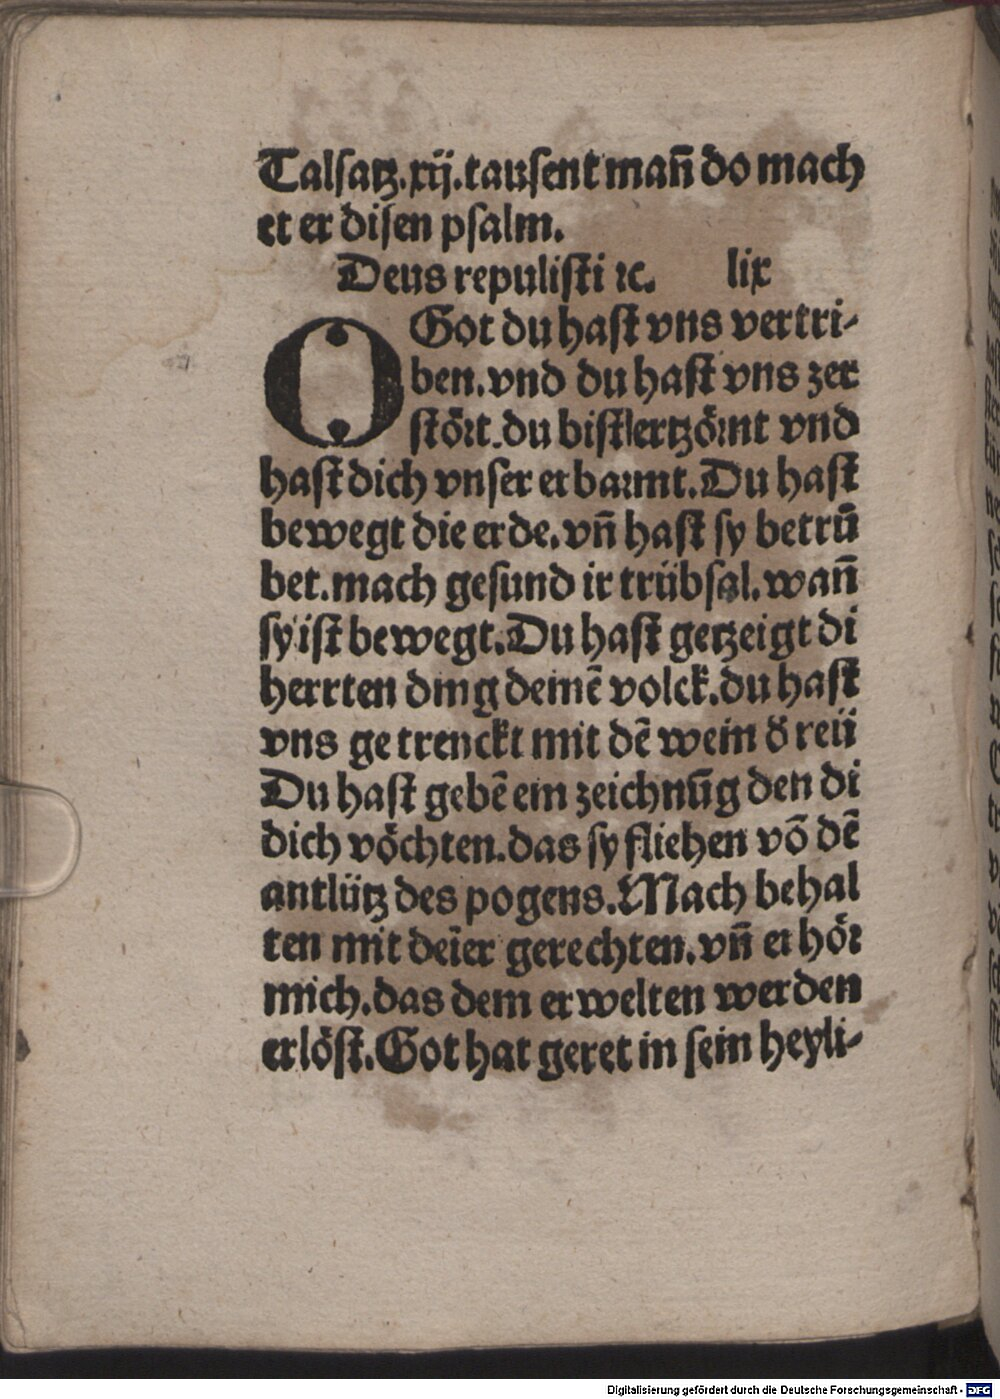 Talsatz.xij.tausent man̄ do mach
et er disen psalm.
Deus repulisti ⁊c. lix
O Got du hast vns vertri-
ben.vnd du hast vns zer
stört.du bist ertzörnt vnd
hast dich vnser erbarmt.Du hast
bewegt die erde.vn̄ hast sy betrü
bet.mach gesund ir trübsal.wan̄
sy ist bewegt.Du hast getzeigt di
herrten ding deinē volck.du hast
vns getrenckt mit dē wein d̄ reü
Du hast gebē ein zeichnūg den di
dich vöchten.das sy fliehen vō dē
antlütz des pogens.Mach behal
ten mit deīer gerechten.vn̄ erhör
mich.das dem erwelten werden
erlöst.Got hat geret in sein heyli-
Digitalisierung gefördert durch die Deutsche Forschungsgemeinschaft - DFG